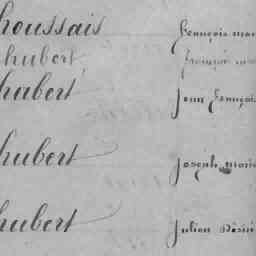 houssais françois mar
hubert françois ma
habert jean françois
hubert joseph marie
hubert julien désiré